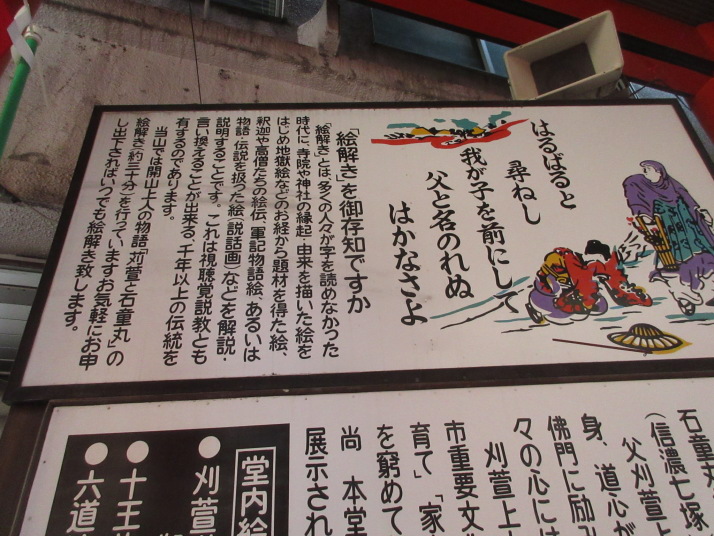 はるばると
尋ねし
我が子を前にして
父と名のれぬ
はかなさよ
「絵解き」を御存知ですか
「絵解き」とは、多くの人々が字を読めなかった
時代に、寺院や神社の縁起・由来を描いた絵を
はじめ地獄絵などのお経から題材を得た絵、
釈迦や高僧たちの絵伝、軍記物語絵、あるいは
物語・伝説を扱った絵(説話画)などを解説・
説明することです。これは視聴覚説教とも
言い換えることが出来る、千年以上の伝統を
有するのであります。
当山では開山上人の物語「苅萱と石童丸」の
絵解き(約三十分)を行っていますお気軽にお申
し出下さればいつでも絵解き致します。
石童丸
(信濃七塚
父刈萱上
身、道心が
佛門に励み
々の心には
刈萱上
市重要文
育て」「家
を窮めて
尚 本堂
展示され
堂内絵
●刈萱
●十王
●六道